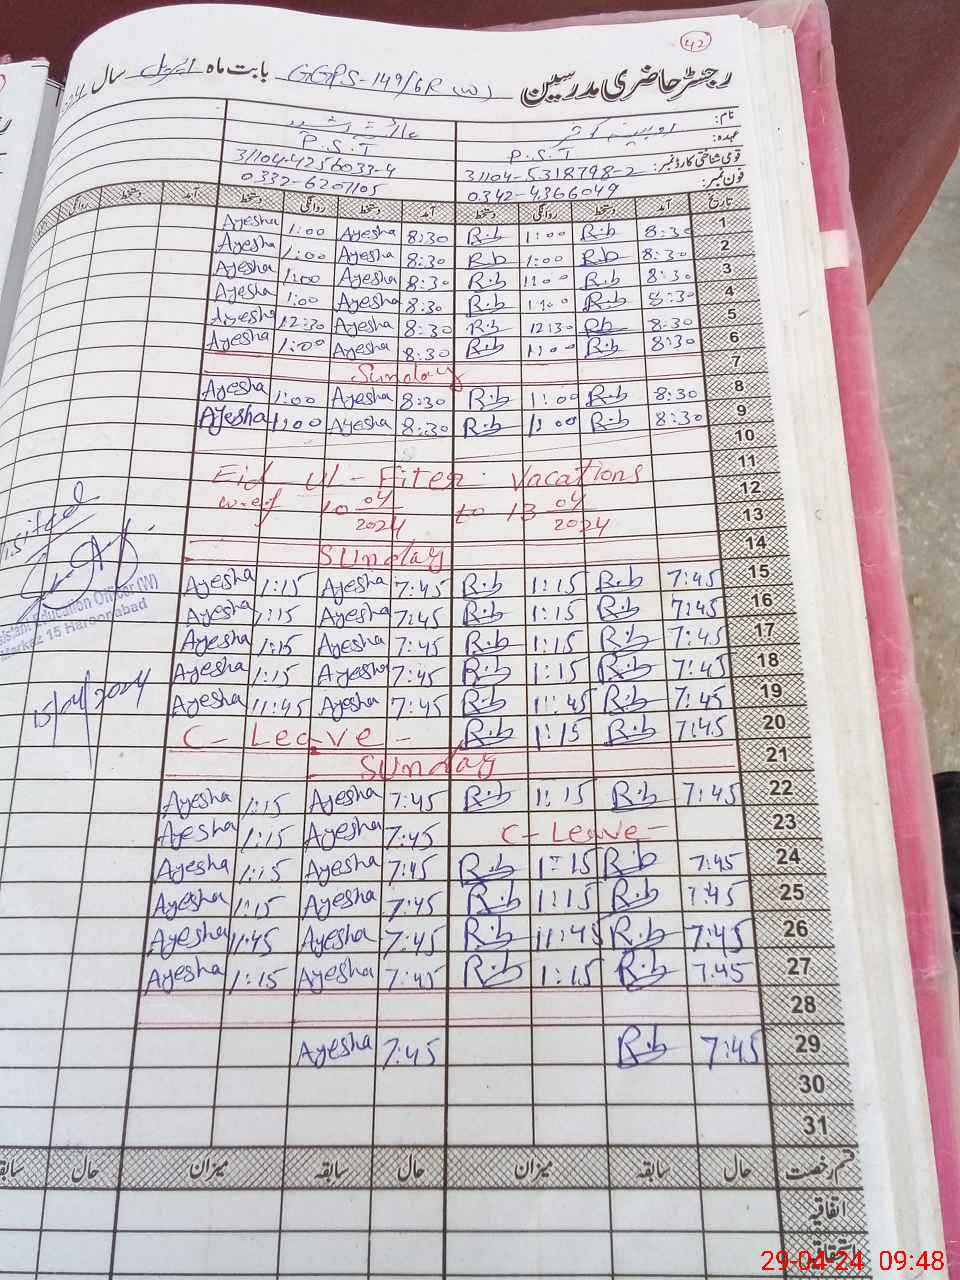 42
رجسٹر حاضری مدرسین GGPS-149/6R (W) بابت ماہ اپریل سال
نام:
عہدہ: P.S.T P.S.T
قومی شناختی کارڈ نمبر: 31104-5318798-2 31104-4256033-4
فون نمبر: 0342-4366049 0332-6207105
تاریخ آمد دستخط روانگی دستخط آمد دستخط روانگی دستخط آمد دستخط روانگی دستخط
1 8:30 R.b 1:00 R.b 8:30 Ayesha 1:00 Ayesha
2 8:30 Rb 1:00 Rb 8:30 Ayesha 1:00 Ayesha
3 8:30 R.b 1:00 R.b 8:30 Ayesha 1:00 Ayesha
4 8:30 R.b 1:00 R.b 8:30 Ayesha 1:00 Ayesha
5 8:30 Rb 12:30 R.b 8:30 Ayesha 12:30 Ayesha
6 8:30 R.b 1:00 R.b 8:30 Ayesha 1:00 Ayesha
7 Sunday
8 8:30 R.b 1:00 R.b 8:30 Ayesha 1:00 Ayesha
9 8:30 R.b 1:00 R.b 8:30 Ayesha 1:00 Ayesha
10
11 Eid ul-Fiter Vacations
12 w.e.f 10 04/2024 to 13 04/2024
13
14 Sunday
15 7:45 R.b 1:15 R.b 7:45 Ayesha 1:15 Ayesha
16 7:45 R.b 1:15 R.b 7:45 Ayesha 1:15 Ayesha
17 7:45 R.b 1:15 R.b 7:45 Ayesha 1:15 Ayesha
18 7:45 R.b 1:15 R.b 7:45 Ayesha 1:15 Ayesha
19 7:45 R.b 11:45 R.b 7:45 Ayesha 11:45 Ayesha
20 7:45 R.b 1:15 R.b C-Leave-
21 Sunday
22 7:45 R.b 1:15 R.b 7:45 Ayesha 1:15 Ayesha
23 C-Leave- 7:45 Ayesha 1:15 Ayesha
24 7:45 R.b 1:15 R.b 7:45 Ayesha 1:15 Ayesha
25 7:45 R.b 1:15 R.b 7:45 Ayesha 1:15 Ayesha
26 7:45 R.b 11:45 R.b 7:45 Ayesha 11:45 Ayesha
27 7:45 R.b 1:15 R.b 7:45 Ayesha 1:15 Ayesha
28
29 7:45 R.b 7:45 Ayesha
30
31
قسم رخصت حال سابقہ میزان حال سابقہ میزان حال سابقہ
اتفاقیہ
استحقاقیہ
Education Officer (W)
Markaz 15 Haroonabad
15/04/2024
29-04-24 09:48